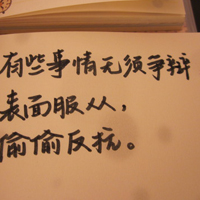 有些事情无须争辩
表面服从，
偷偷反抗。